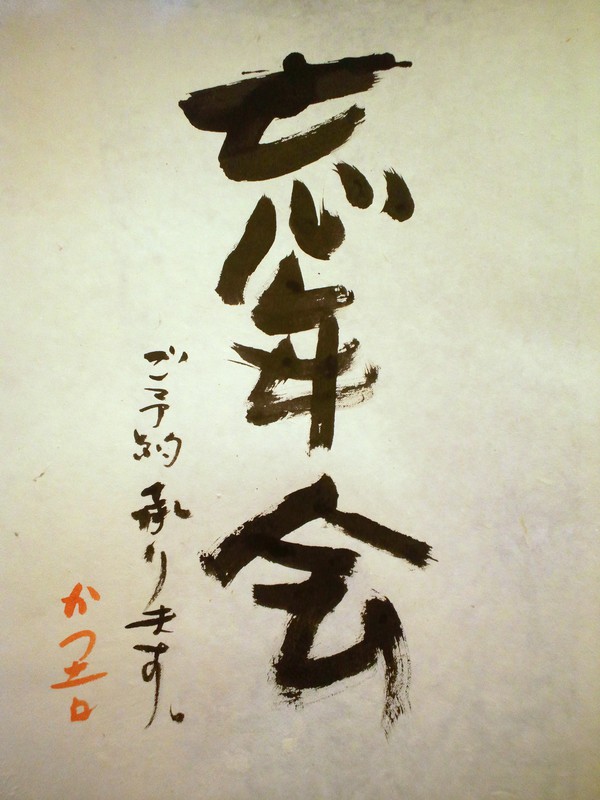 忘年会
ご予約承ります。
かつ吉